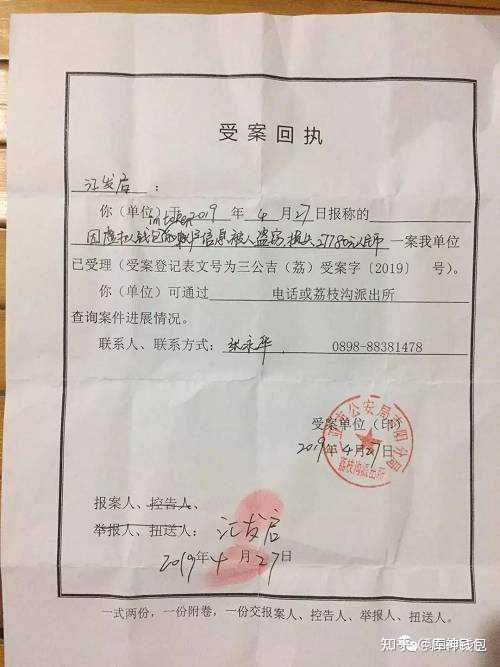 受案回执
江发启：
你（单位）于2019年4月27日报称的
imtoken
因虚拟钱包的数字信息被人盗窃,损失27780元人民币一案我单位
已受理（受案登记表文号为三公吉（荔）受案字〔2019〕 号）。
你（单位）可通过 电话或荔枝沟派出所
查询案件进展情况。
联系人、联系方式：张永华, 0898-88381478
三亚市公安局吉阳分局
荔枝沟派出所
受案单位（印）
2019年4月27日
报案人、控告人、
举报人、扭送人：江发启
2019年4月27日
一式两份，一份附卷，一份交报案人、控告人、举报人、扭送人。
知乎 @库神钱包